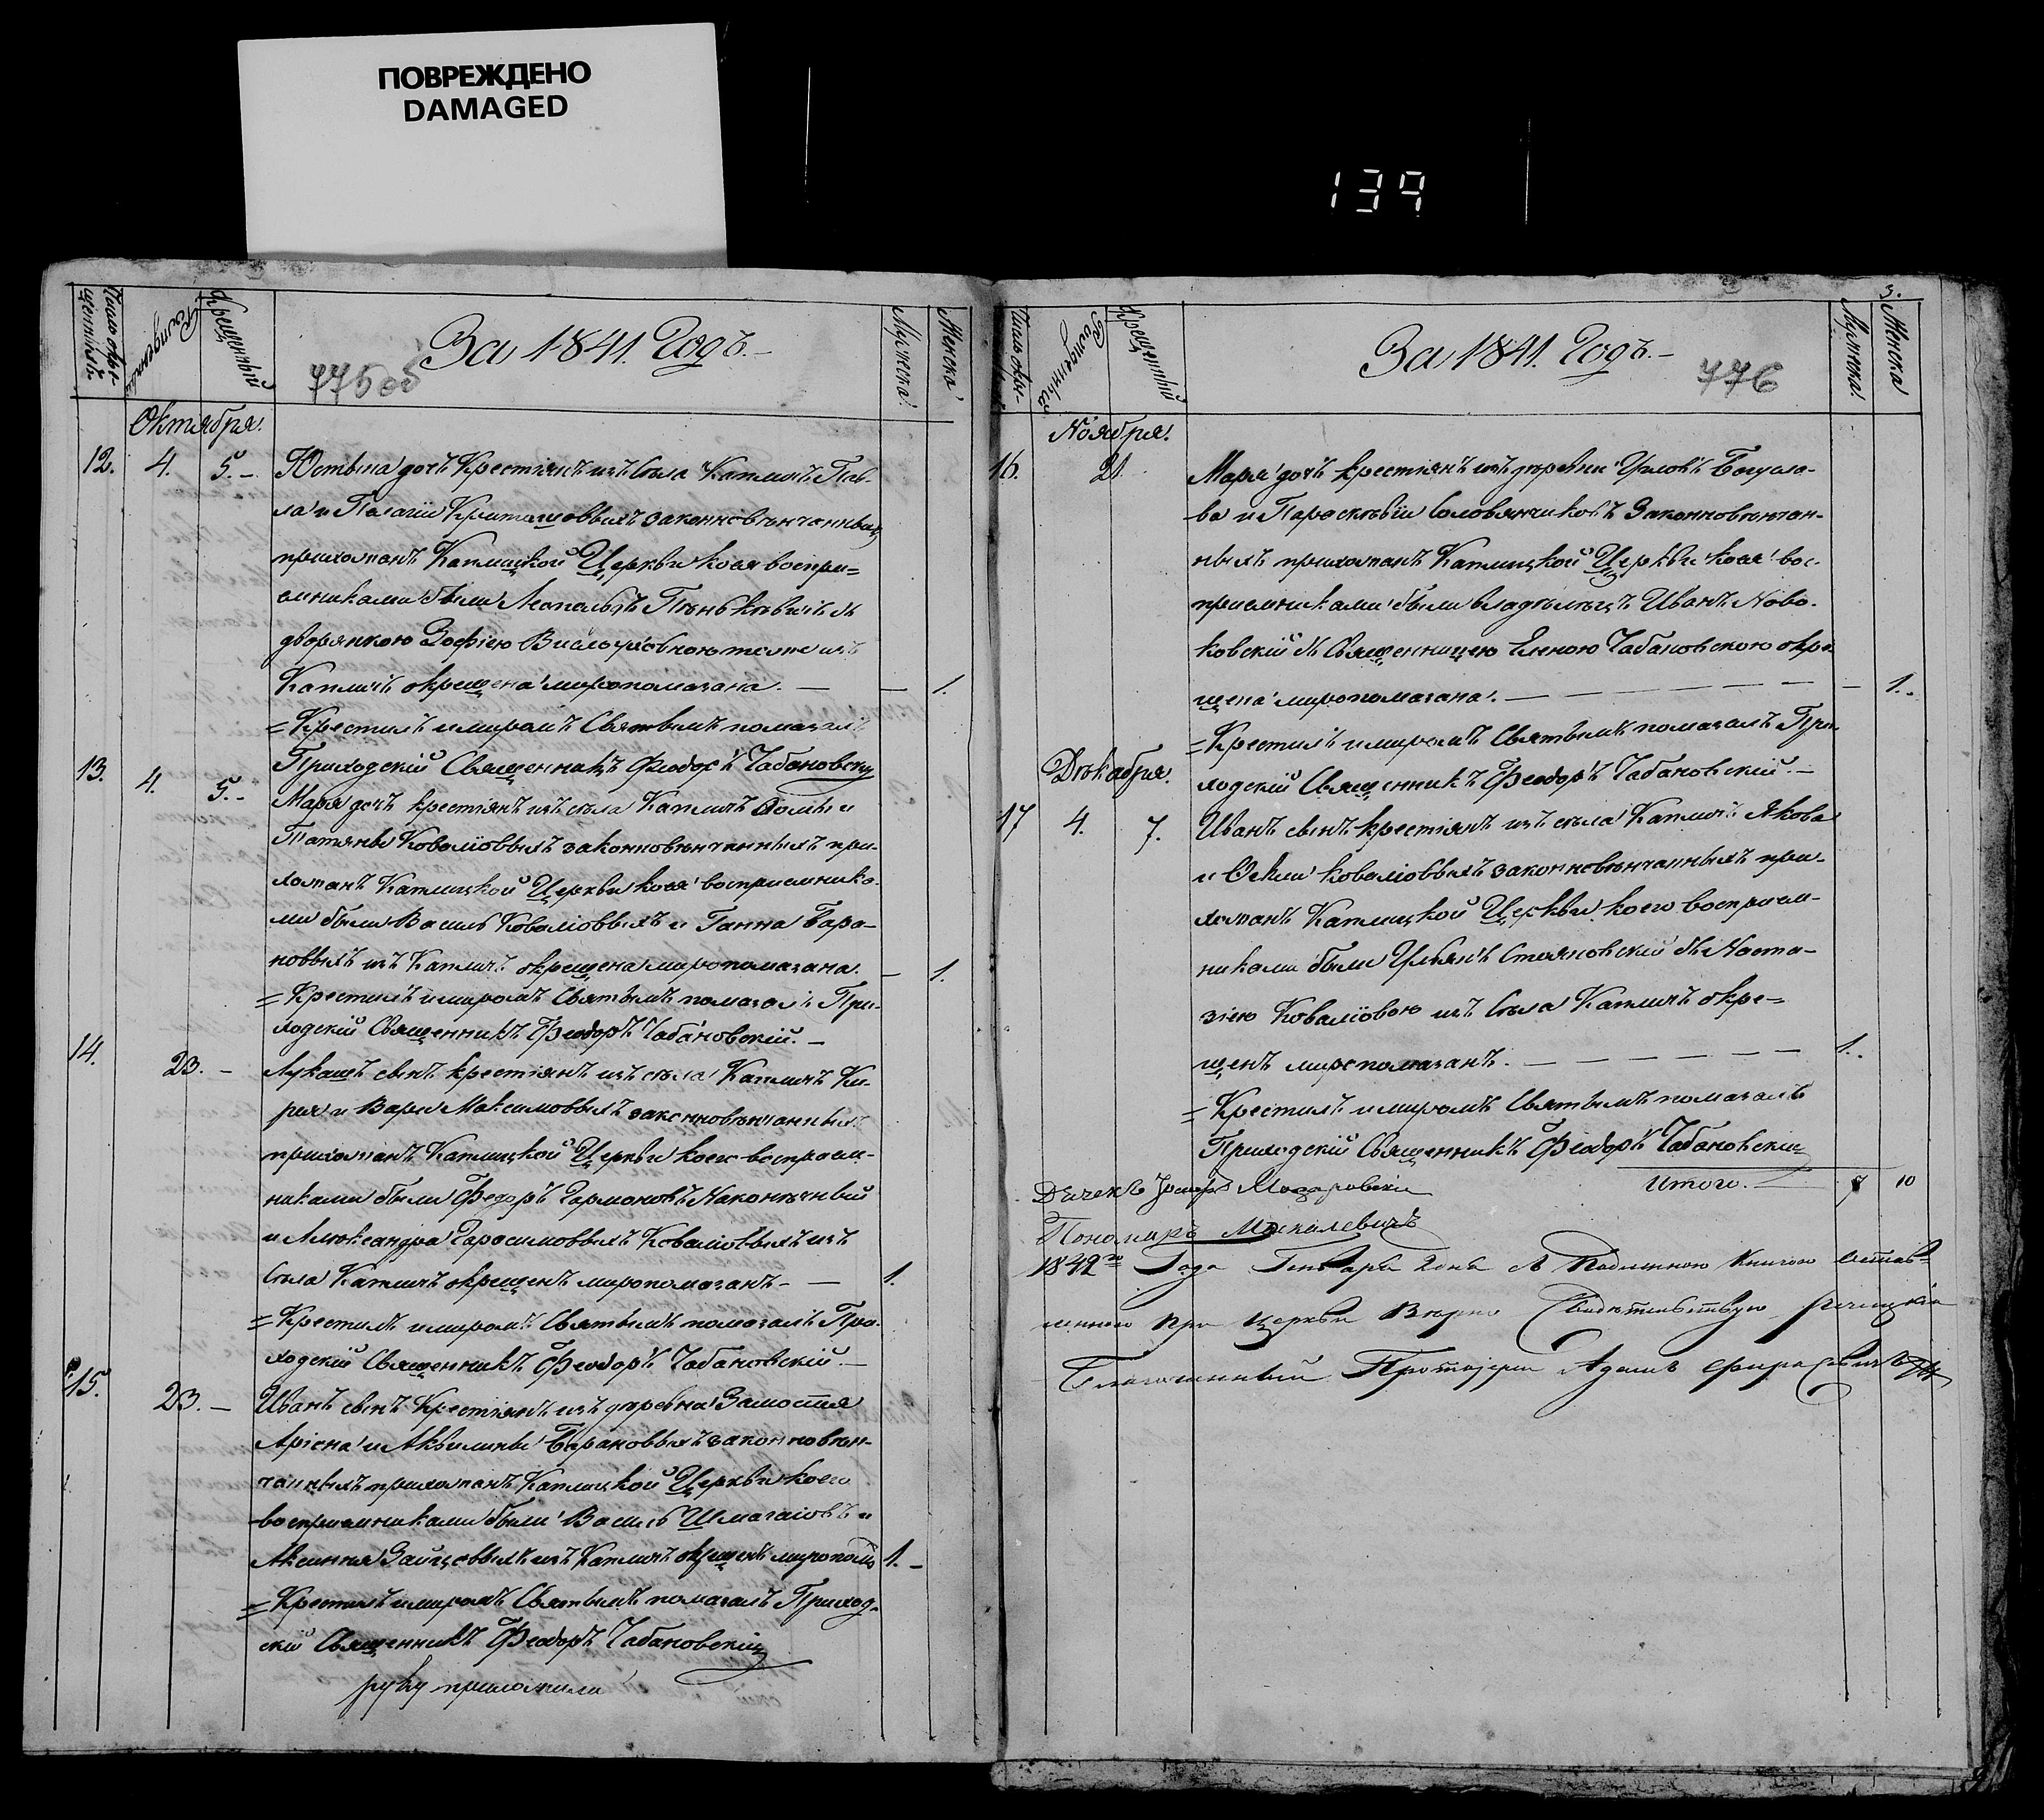 ПОВРЕЖДЕНО
DAMAGED
139
Рожденный
Крещенный
За 1841. Годъ.-
775об
Мужеска
Женска
Октября.
12. 4. 5.- Юстына дочь Крестіянъ изъ Села Капличъ Пав-
ла и Палагіи законновѣнчанныхъ
прихожанъ Каплицкой Церкви коея воспри=
емниками были Леопольдъ съ
дворянкою Зофіею тоже изъ
Капличъ окрещена миропомазана. — — 1.
=Крестилъ и миромъ Святымъ помазалъ
Приходскій Священникъ Феодоръ Чабановскій
13. 4. 5.- Марія дочь крестіянъ изъ села Капличъ Фомы и
Татяны Ковалiовыхъ законновѣнчанныхъ при-
хожанъ Каплицкой Церкви коея воспріемника-
ми были Василь Ковалiовыхъ и Ганна Бара-
новыхъ изъ Капличъ окрещена миропомазана. — 1.
=Крестилъ и миромъ Святымъ помазалъ При-
ходскій Священникъ Феодоръ Чабановскій.-
14. 23.- Лукашъ сынъ крестіянъ изъ села Капличъ Ки-
рея и Вары Максимовыхъ законновѣнчанныхъ
прихожанъ Каплицкой Церкви коего воспріем-
никами были Федоръ Гармоновъ Наконечный
и Александра Гарасимовыхъ Ковалiовыхъ изъ
Села Капличъ окрещенъ миропомазанъ- — 1.
=Крестилъ и миромъ Святымъ помазалъ При-
ходскій Священникъ Феодоръ Чабановскій.-
15. 23.- Иванъ сынъ Крестіянъ изъ деревни Замостя
и Аквилины Барановыхъ законновѣн-
чанныхъ прихожанъ Каплицкой Церкви коего
воспріемниками были Василь и
Аксинія Зайцовыхъ изъ Капличъ окрещенъ 1.-
=Крестилъ и миромъ Святымъ помазалъ Приход-
скій Священникъ Феодоръ Чабановскій
руку приложилъ
3.
Рожденный
Крещенный
За 1841. Годъ.-
776
Мужеска
Женска
Ноября.
16. 21. Марія дочь крестіянъ изъ деревни Богусла-
ва и Параскевіи Соловянчиковъ Законновѣнчан-
ныхъ прихожанъ Каплицкой Церкви коея вос-
пріемниками были владѣлецъ Иванъ Ново-
ковскій съ Священницею Еленою Чабановскою окре-
щена миропомазана. — — — — — 1..
=Крестилъ и миромъ Святымъ помазалъ При-
ходскій Священникъ Феодоръ Чабановскій.-
Декабря.
17 4. 7. Иванъ сынъ крестіянъ изъ села Капличъ Якова
и Ковалiовыхъ законновѣнчанныхъ при-
хожанъ Каплицкой Церкви коего воспріем-
никами были Ульянъ Стояновскій съ Наста-
зіею Ковалiовою изъ Села Капличъ окре=
щенъ миропомазанъ. — — — — — 1..
=Крестилъ и миромъ Святымъ помазалъ
Приходскій Священникъ Феодоръ Чабановскій
Итого. — 7 10
Дьячекъ
Пономаръ
1842го Года Генваря дня съ Подлинною Книгою оставл-
енною при Церкви Вѣрно Свидѣтельствую Речицкій
Благочинный Протоіерей Адамъ